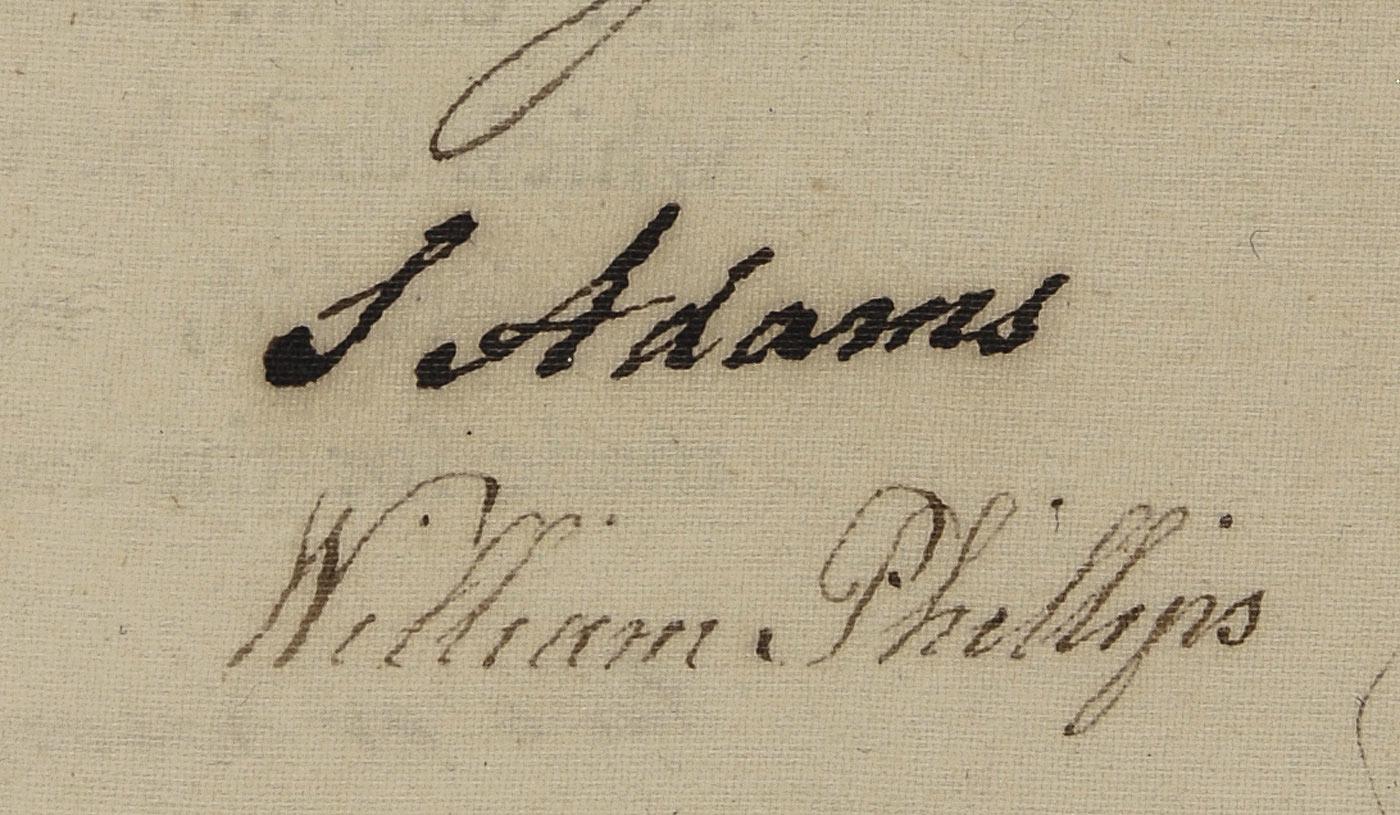 S Adams
William Phillips